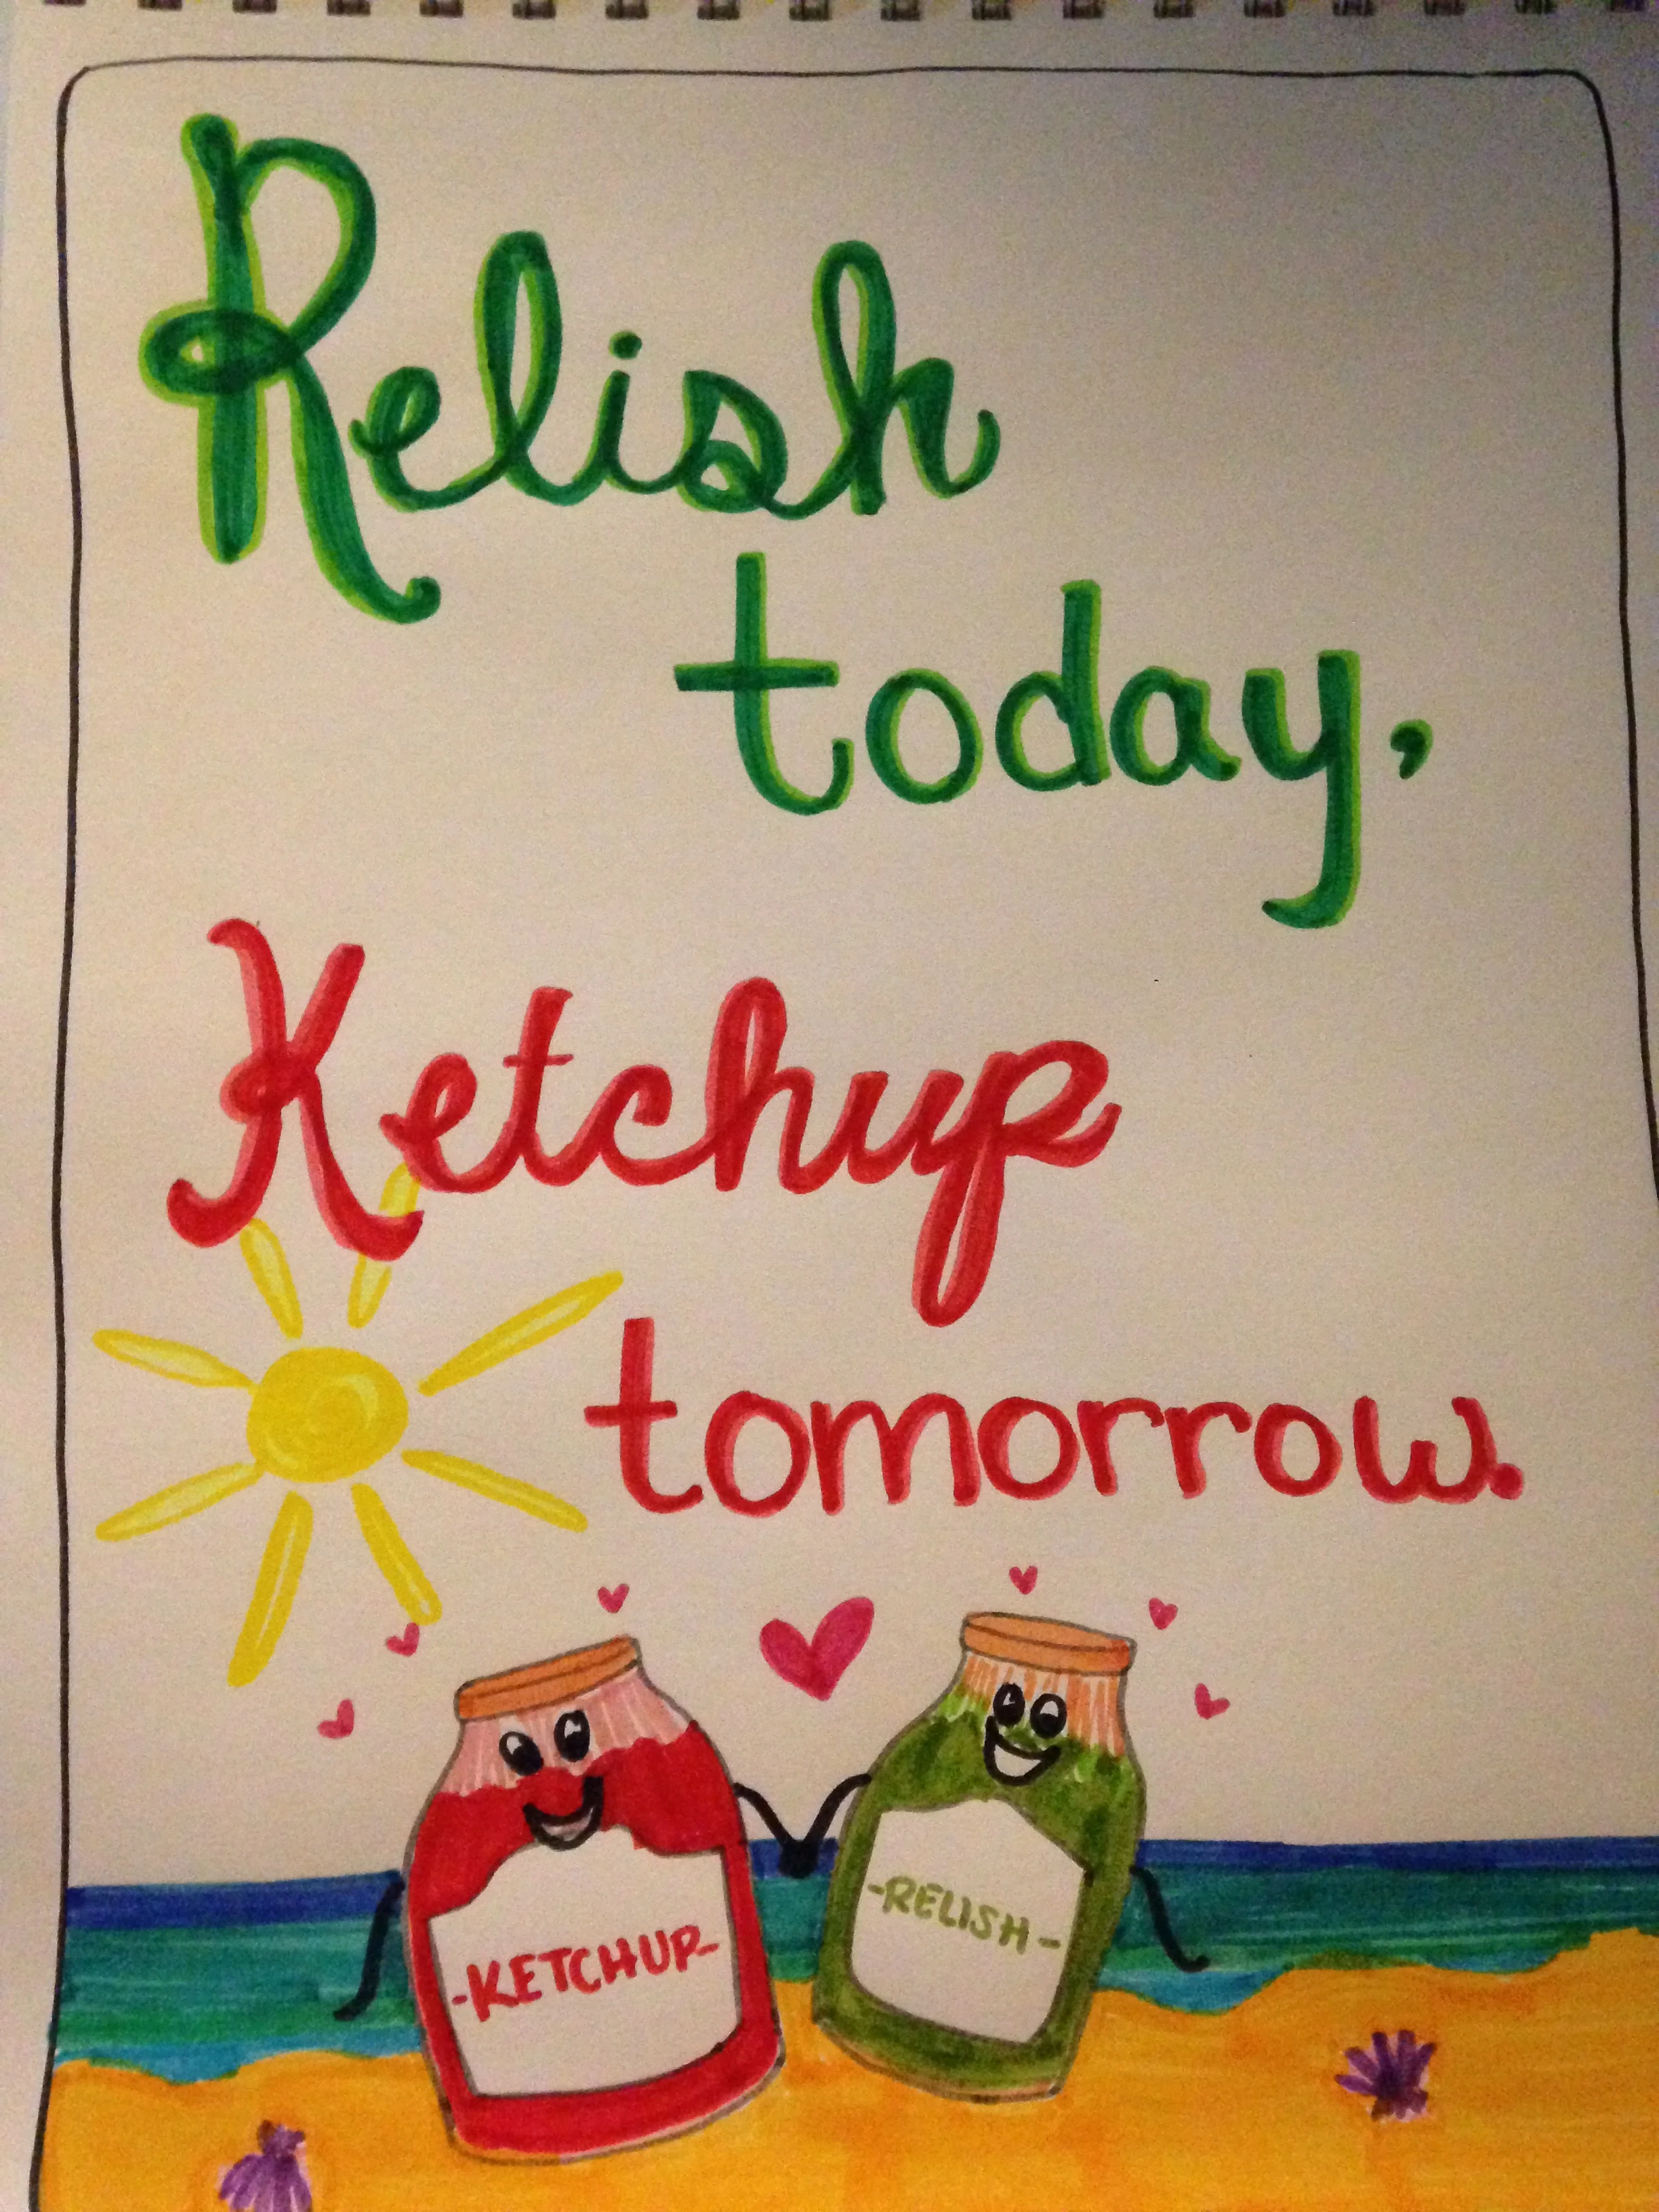 Relish
today,
Ketchup
tomorrow.
-KETCHUP-
-RELISH-